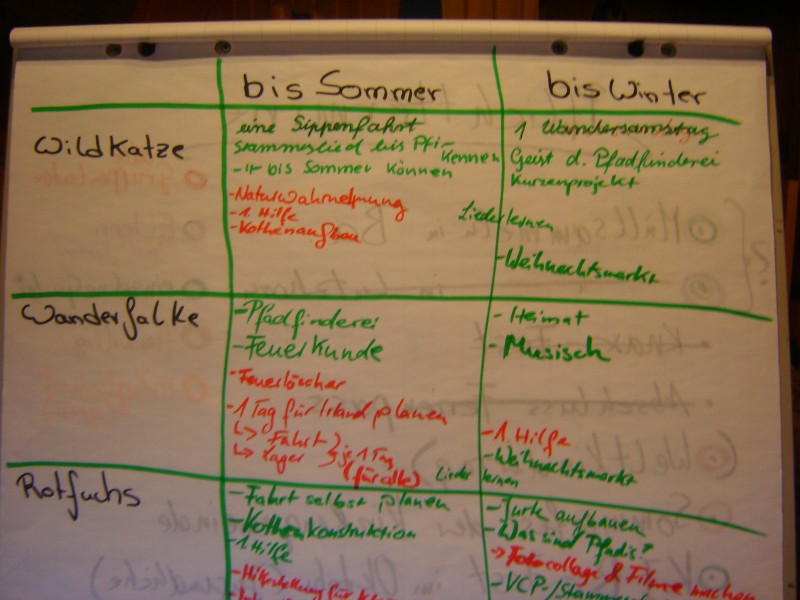 bis Sommer
bis Winter
Wildkatze
eine Sippenfahrt
Stammeslied bis Pfi-
- 1+ bis Sommer können
Kennen
- Naturwahrnehmung
- 1. Hilfe
- Kothenaufbau
Lieder lernen
1 Wandersamstag
Geist d. Pfadfinderei
Kurzenprojekt
- Weihnachtsmarkt
Wanderfalke
- Pfadfinderei
- Feuerkunde
- Feuerlöscher
- 1 Tag für Irland planen
↳ Fahrt
↳ Lager
je 1 Tag
(für alle)
Lieder lernen
- Heimat
- Musisch
- 1. Hilfe
- Weihnachtsmarkt
Rotfuchs
- Fahrt selbst planen
- Kothenkonstruktion
- 1 Hilfe
- Jurte aufbauen
- Was sind Pfadis?
→ Fotocollage & Filme machen
- VCP-/Stammes